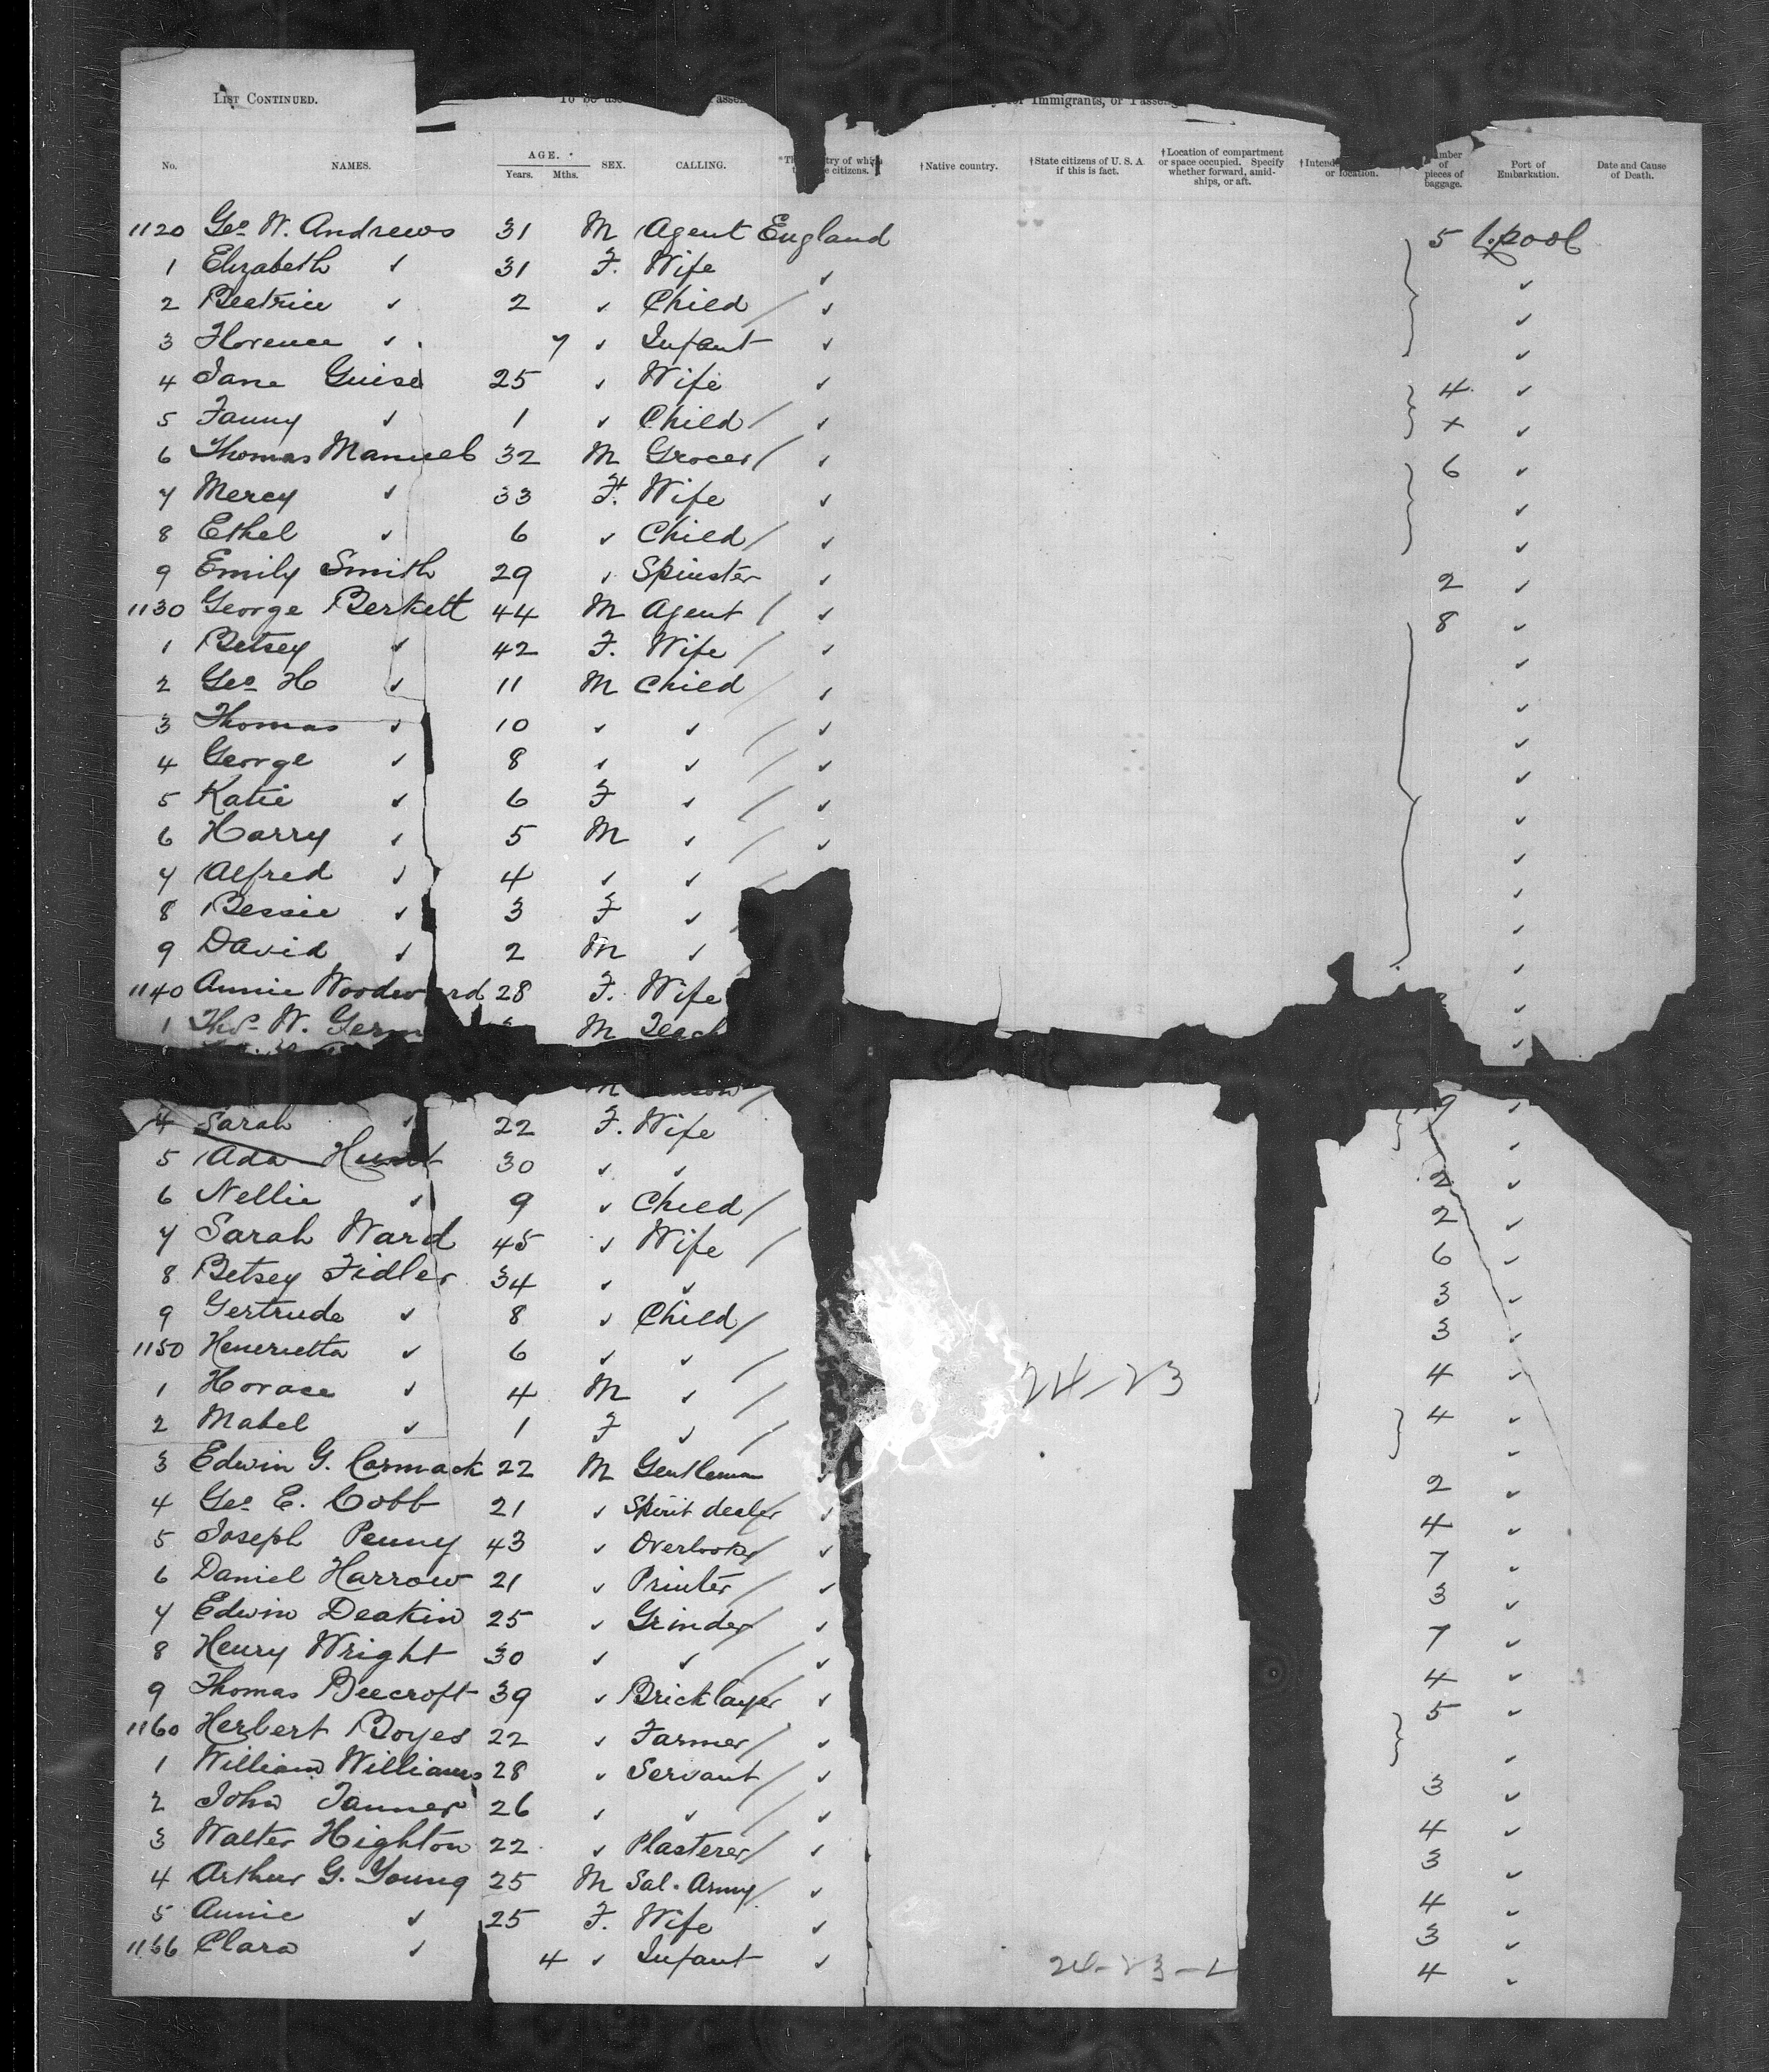 LIST CONTINUED.
To be use
Immigrants, or Passeng
No. NAMES. AGE. Years. Mths. SEX. CALLING. citizens. †Native country. †State citizens of U. S. A. if this is fact. †Location of compartment or space occupied. Specify whether forward, amidships, or aft. or location. of pieces of baggage. Port of Embarkation. Date and Cause of Death.
1120 Geo W. Andrews 31 M Agent England 5 L.pool
1 Elizabeth ✓ 31 F. Wife ✓ ✓
2 Beatrice ✓ 2 ✓ Child / ✓ ✓
3 Florence ✓ 7 ✓ Infant ✓ ✓
4 Jane Guise 25 ✓ Wife ✓ 4 ✓
5 Fanny ✓ 1 ✓ Child / ✓ x ✓
6 Thomas Manuel 32 M Grocer / ✓ 6 ✓
7 Mercy ✓ 33 F. Wife ✓ ✓
8 Ethel ✓ 6 ✓ Child / ✓ ✓
9 Emily Smith 29 ✓ Spinster ✓ 2 ✓
1130 George Berkett 44 M Agent / ✓ 8 ✓
1 Betsey ✓ 42 F. Wife / ✓ ✓
2 Geo H ✓ 11 M Child / ✓ ✓
3 Thomas ✓ 10 ✓ ✓ / ✓ ✓
4 George ✓ 8 ✓ ✓ / ✓ ✓
5 Katie ✓ 6 F ✓ / ✓ ✓
6 Harry ✓ 5 M ✓ / ✓ ✓
7 Alfred ✓ 4 ✓ ✓ / ✓
8 Bessie ✓ 3 F ✓ / ✓
9 David ✓ 2 M ✓ / ✓
1140 Annie Woodward 28 F. Wife ✓
1 Thos W. Germ M Teach ✓
M
4 Sarah ✓ 22 F. Wife ✓
5 Ada Hunt 30 ✓ ✓ 2 ✓
6 Nellie ✓ 9 ✓ Child / 2 ✓
7 Sarah Ward 45 ✓ Wife / 6 ✓
8 Betsey Fidler 34 ✓ ✓ 3 ✓
9 Gertrude ✓ 8 ✓ Child / 3 ✓
1150 Henerietta ✓ 6 ✓ ✓ / 4 ✓
1 Horace ✓ 4 M ✓ / 24-23 4 ✓
2 Mabel ✓ 1 F ✓ / ✓
3 Edwin G. Cormack 22 M Gentleman ✓ 2 ✓
4 Geo E. Cobb 21 ✓ Spirit dealer / ✓ 4 ✓
5 Joseph Penny 43 ✓ Overlooker / ✓ 7 ✓
6 Daniel Harrow 21 ✓ Printer / ✓ 3 ✓
7 Edwin Deakin 25 ✓ Grinder / ✓ 7 ✓
8 Henry Wright 30 ✓ ✓ / ✓ 4 ✓
9 Thomas Beecroft 39 ✓ Bricklayer ✓ 5 ✓
1160 Herbert Boyes 22 ✓ Farmer / ✓ ✓
1 William Williams 28 ✓ Servant / ✓ 3 ✓
2 John Tanner 26 ✓ ✓ / ✓ 4 ✓
3 Walter Highton 22 ✓ Plasterer / ✓ 3 ✓
4 Arthur G. Young 25 M Sal. Army / ✓ 4 ✓
5 Annie ✓ 25 F. Wife ✓ 3 ✓
1166 Clara ✓ 4 ✓ Infant ✓ 4 ✓